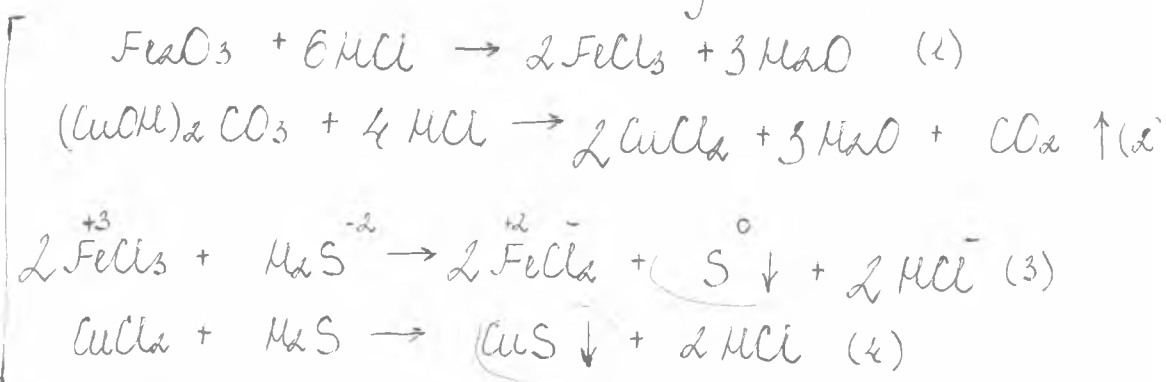 Fe2O3 + 6HCl → 2FeCl3 + 3H2O (1)
(CuOH)2CO3 + 4HCl → 2CuCl2 + 3H2O + CO2 ↑ (2)
+3 -2 +2 - 0 -
2FeCl3 + H2S → 2FeCl2 + S ↓ + 2HCl (3)
CuCl2 + H2S → CuS ↓ + 2HCl (4)